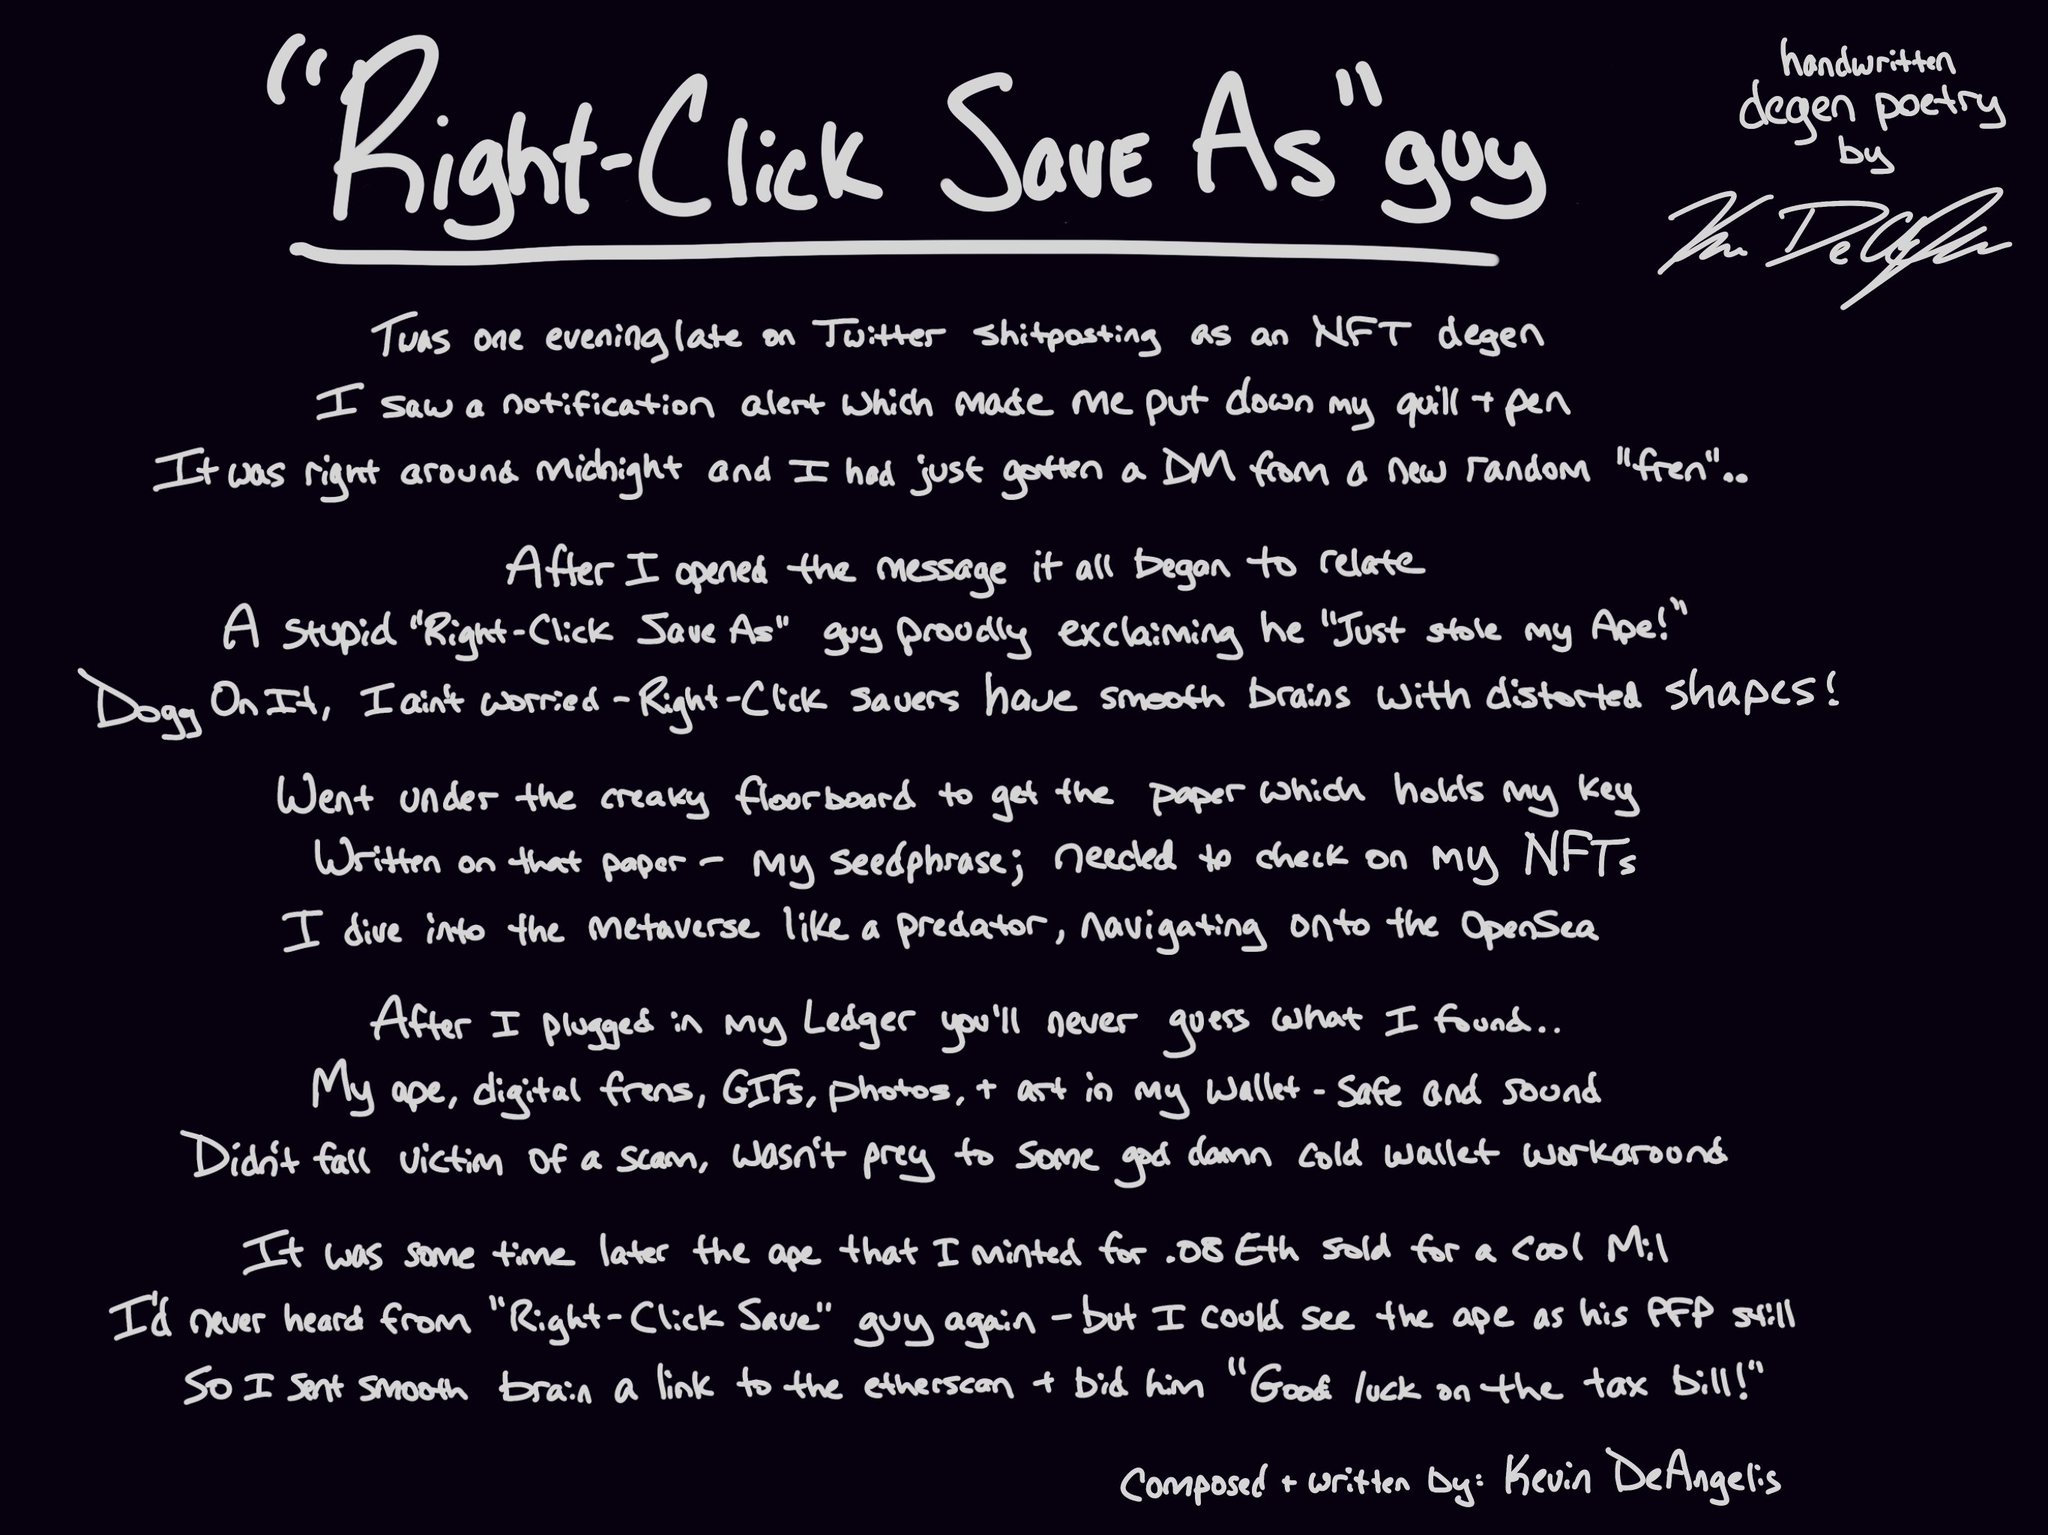 "Right-Click Save As" guy
handwritten
degen poetry
by
Twas one evening late on Twitter shitposting as an NFT degen
I saw a notification alert which made me put down my quill + pen
It was right around midnight and I had just gotten a DM from a new random "fren"..
After I opened the message it all began to relate
A stupid "Right-Click Save As" guy proudly exclaiming he "Just stole my Ape!"
Dogg On It, I ain't worried - Right-Click savers have smooth brains with distorted shapes!
Went under the creaky floorboard to get the paper which holds my key
Written on that paper - my seedphrase; needed to check on my NFTs
I dive into the metaverse like a predator, navigating onto the OpenSea
After I plugged in my Ledger you'll never guess what I found..
My ape, digital frens, GIFs, photos, + art in my wallet - safe and sound
Didn't fall victim of a scam, wasn't prey to some god damn cold wallet workaround
It was some time later the ape that I minted for .08 Eth sold for a cool Mil
I'd never heard from "Right-Click Save" guy again - but I could see the ape as his PFP still
So I sent smooth brain a link to the etherscan + bid him "Good luck on the tax bill!"
Composed + written by: Kevin DeAngelis